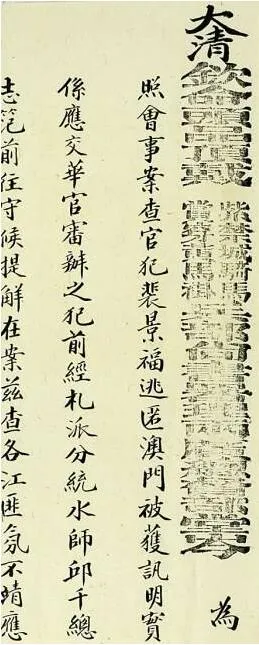 大清欽命頭品頂戴紫禁城騎馬賞穿黃馬褂兵部尚書署理兩廣總督部堂岑為
照會事案查官犯裴景福逃匿澳門被獲訊明實
係應交華官審辦之犯前經札派分統水師邱千總
志笵前往守候提解在案茲查各江匪氛不靖應